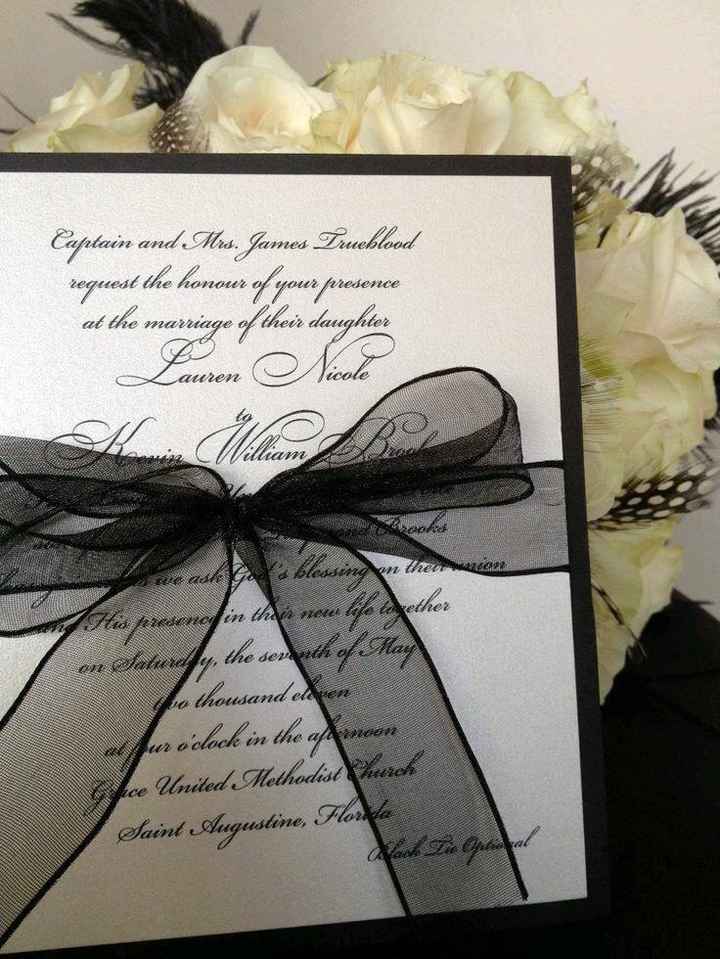 Captain and Mrs. James Trueblood
request the honour of your presence
at the marriage of their daughter
Lauren Nicole
to
Kevin William Brooks
Brooks
we ask God's blessing on their union
and His presence in their new life together
on Saturday, the seventh of May
two thousand eleven
at four o'clock in the afternoon
Grace United Methodist Church
Saint Augustine, Florida
Black Tie Optional